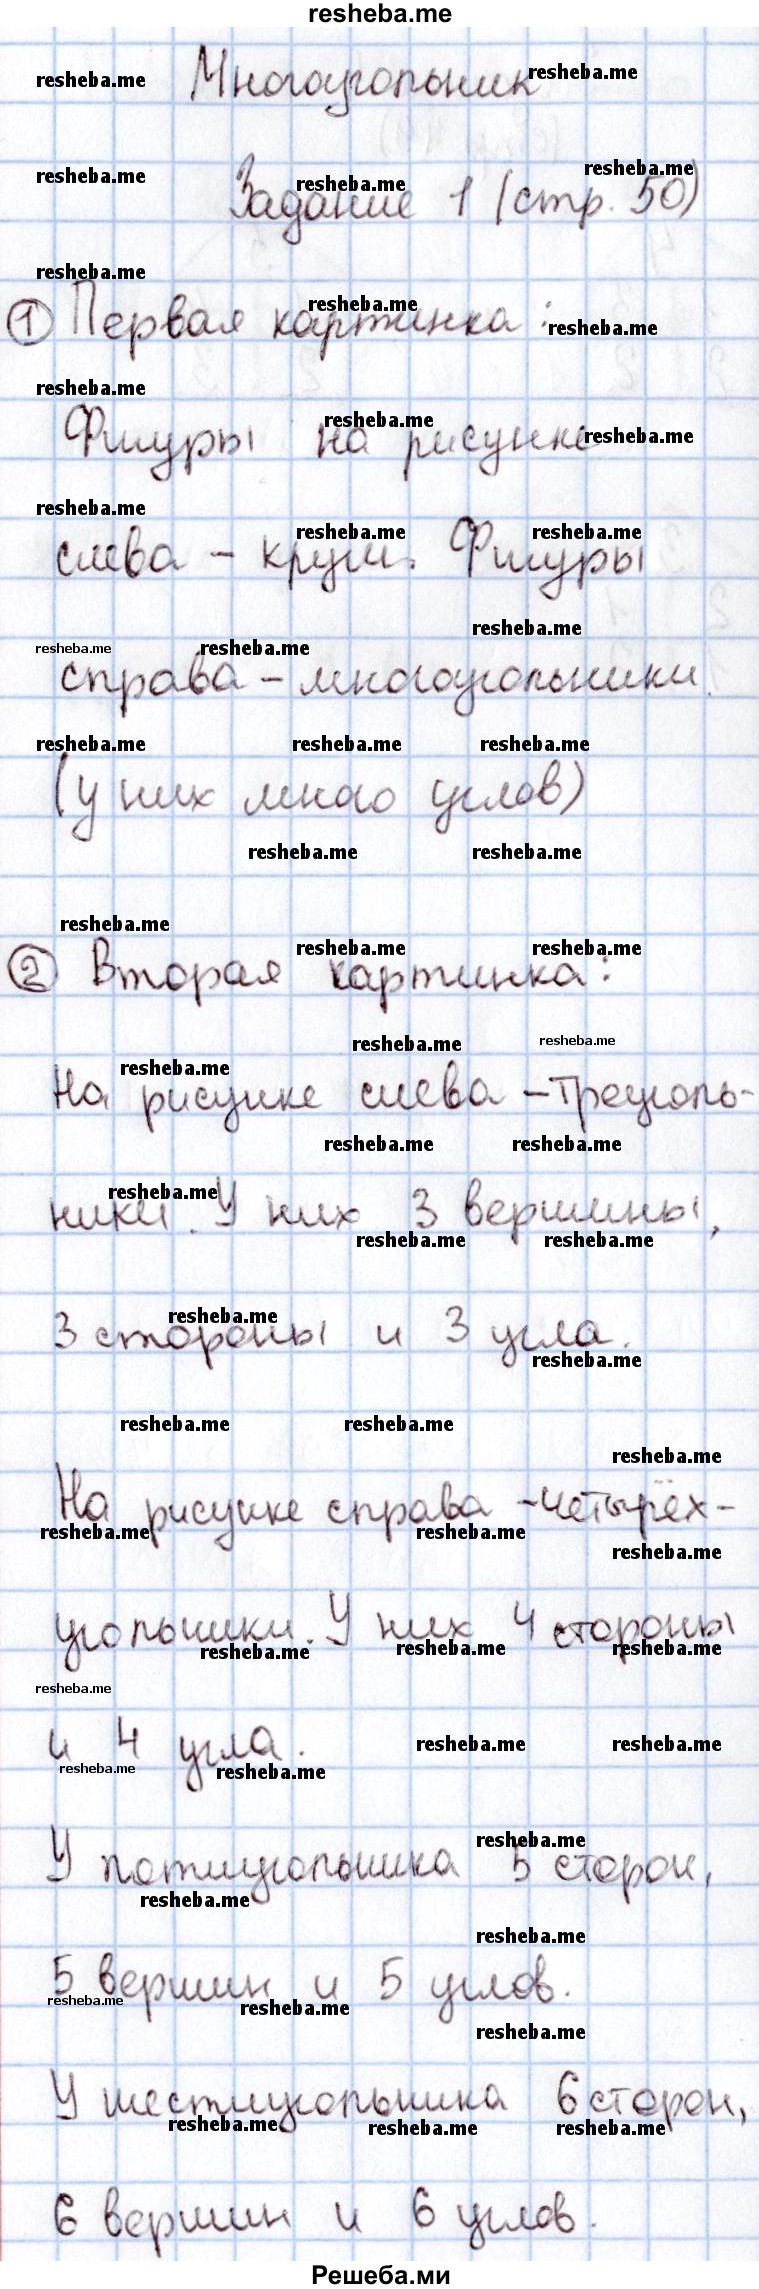 resheba.me
Многоугольник
Задание 1 (стр. 50)
① Первая картинка:
Фигуры на рисунке
слева - круги. Фигуры
справа - многоугольники.
(у них много углов)
② Вторая картинка:
На рисунке слева - треуголь-
ники. У них 3 вершины,
3 стороны и 3 угла.
На рисунке справа - четырёх-
угольники. У них 4 стороны
и 4 угла.
У пятиугольника 5 сторон,
5 вершин и 5 углов.
У шестиугольника 6 сторон,
6 вершин и 6 углов.
Решеба.ми